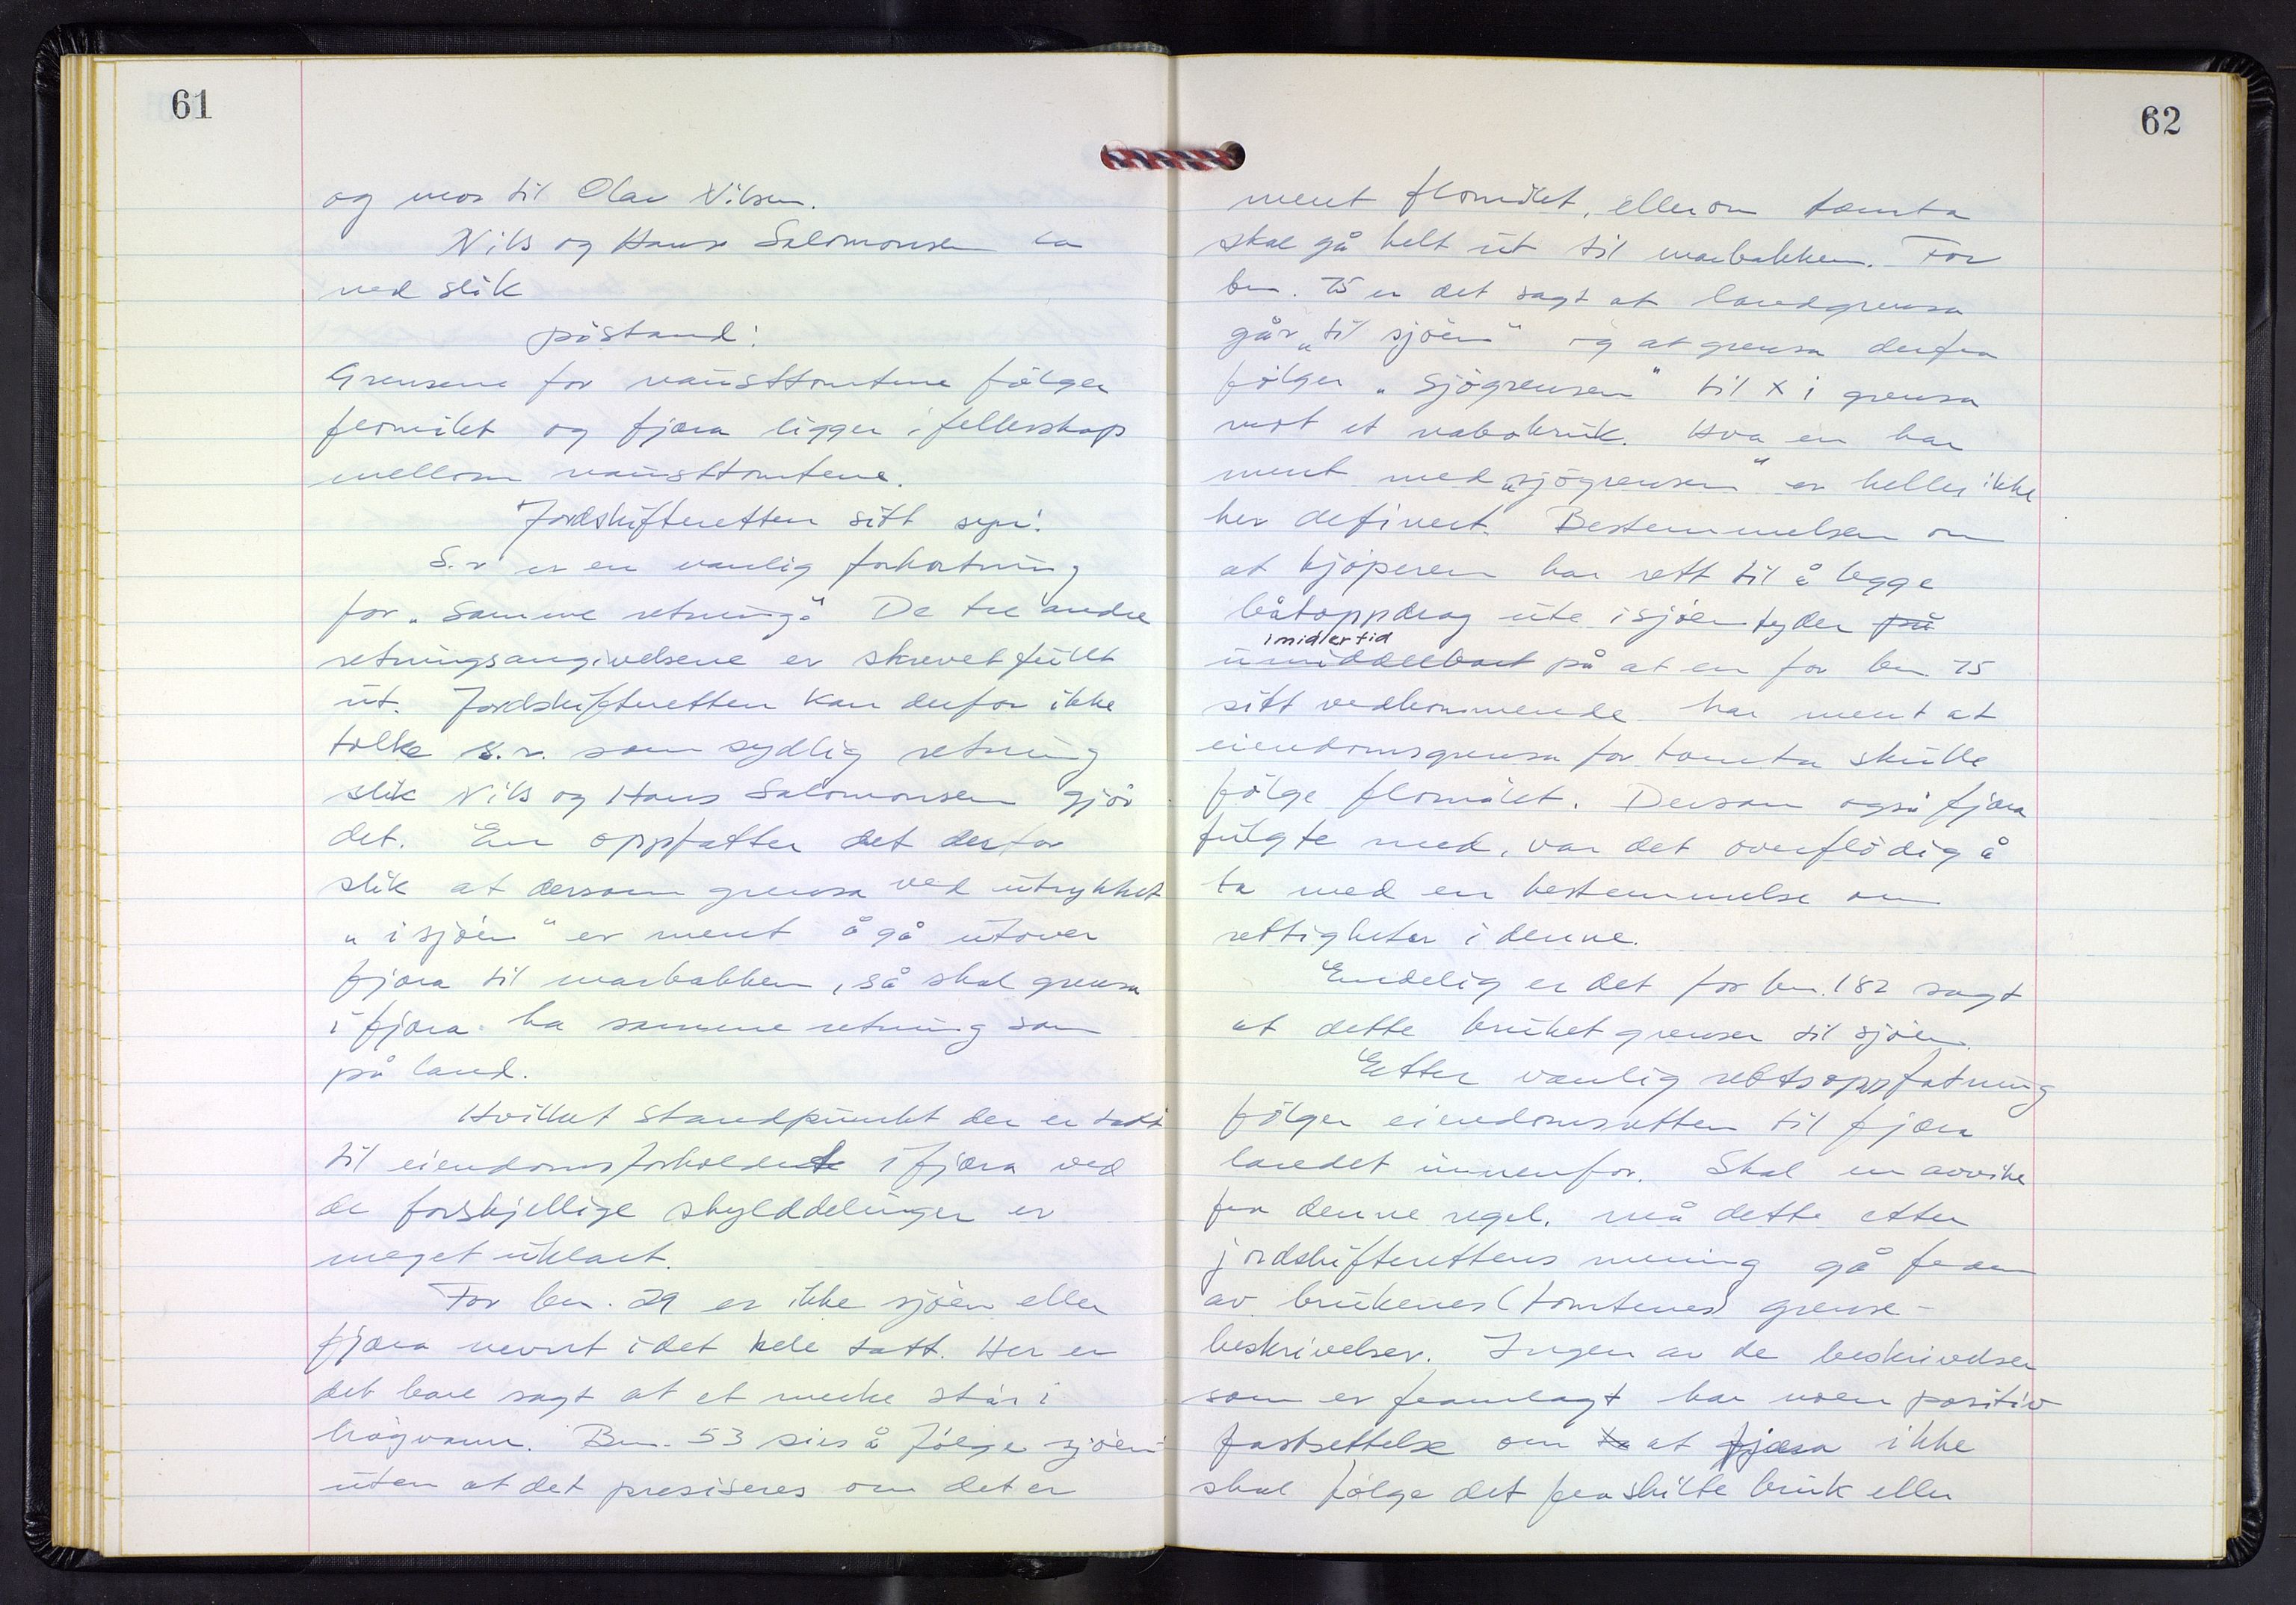 61
og mor til Olav Nilsen.
Nils og Hans Salomonsen la
ned slik
påstand:
Grensene for nausttomtene følger
flomålet og fjæra ligger i fellesskap
mellom nausttomtene.
Jordskifteretten sitt syn:
S.r er en vanlig forkortning
for „samme retning". De tre andre
retningsangivelsene er skrevet fullt
ut. Jordskifteretten kan derfor ikke
tolke s.r. som sydlig retning
slik Nils og Hans Salomonsen gjør
det. En oppfatter det derfor
slik at dersom grensa ved utrykket
„i sjøen" er ment å gå utover
fjæra til marbakken, så skal grensa
i fjæra ha samme retning som
på land.
Hvilket standpunkt der er tatt
til eiendomsforholdet i fjæra ved
de forskjellige skylddelinger er
meget uklart.
For bnr. 29 er ikke sjøen eller
fjæra nevnt i det hele tatt. Her er
det bare sagt at et merke står i
høgvann. Bnr. 53 sies å følge sjøen
uten at det presiseres om det er
62
ment flomålet, eller om tomta
skal gå helt ut til marbakken. For
bnr. 75 er det sagt at landgrensa
går „til sjøen" og at grensa derfra
følger „sjøgrensen" til x i grensa
mot et nabobruk. Hva en har
ment med „sjøgrensen" er heller ikke
her definert. Bestemmelsen om
at kjøperen har rett til å legge
båtoppdrag ute i sjøen tyder på
imidlertid
umiddelbart på at en for bnr 75
sitt vedkommende har ment at
eiendomsgrensa for tomta skulle
følge flomålet. Dersom også fjæra
fulgte med, var det overflødig å
ta med en bestemmelse om
rettigheter i denne.
Endelig er det for bnr. 182 sagt
at dette bruket grenser til sjøen.
Etter vanlig rettsoppfatning
følger eiendomsretten til fjæra
landet innenfor. Skal en avvike
fra denne regel, må dette etter
jordskifterettens mening gå fram
av brukenes (tomtenes) grense-
beskrivelser. Ingen av de beskrivelser
som er framlagt har noen positiv
fastsettelse om at fjæra ikke
skal følge det fraskilte bruk eller